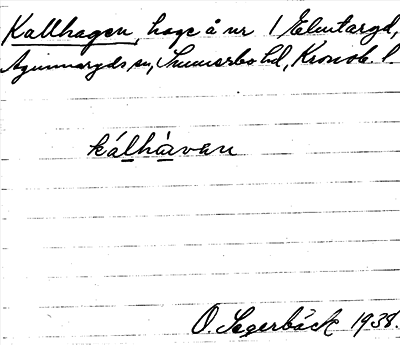 Kallhagen, hage å nr 1 Elmtaryd,
Agunnaryds sn, Sunnerbo hd, Kronob. l.
kálhàvan
O. Segerbäck 1938.